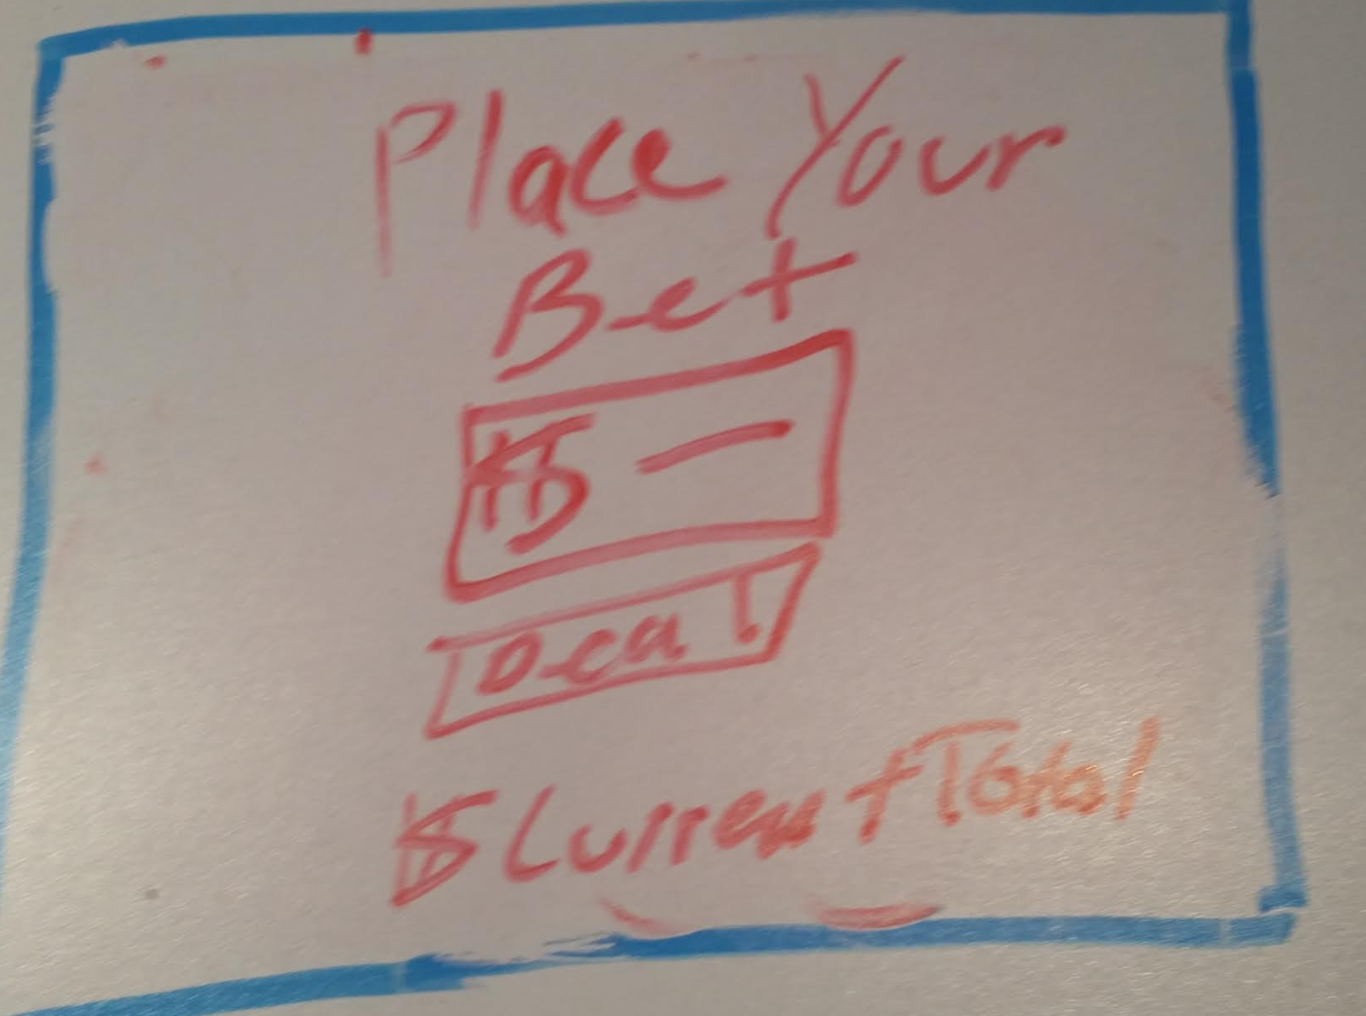 Place Your
Bet
$ —
Deal
$ Current Total